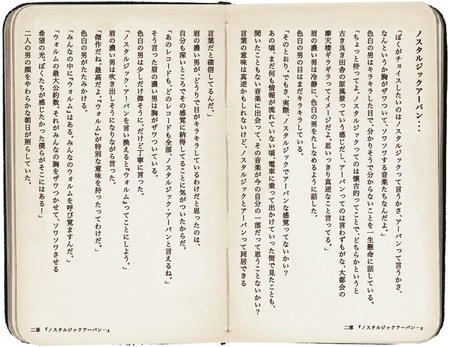 ノスタルジックアーバン…
「ぼくがチョイスしたいのはノスタルジックって言うかさ、アーバンって言うかさ、
なんというか胸がザワつく…ソワソワする音楽たちなんだよ。」
色白の男はキラキラした目で、分かりそうで分からないことを一生懸命に話している。
「ちょっと待ってよ。ノスタルジックってのは懐古的ってことで、どちらかというと
古き良き田舎の原風景っていう感じだし、アーバンってのは言わずもがな、大都会の
摩天楼ギラギラってイメージだよ。思いっきり真逆なこと言ってる。」
眉の濃い男は冷静に、色白の男をたしなめるように話した。
色白の男の目はまだキラキラしている。
「そのとおり。でもさ、実際、ノスタルジックでアーバンな感覚ってないかい？
あの頃、まだ何も情報が流れていない頃、電車に乗って出かけていった街で見たことも、
聞いたこともない音楽に出会って、その音楽が今の自分の一部だって思うことないかい？
言葉の意味は真逆かもしれないけど、ノスタルジックとアーバンって同居できる
二章 『ノスタルジックアーバン…』
言葉だと確信してるんだ。」
眉の濃い男が、どうりで目がキラキラしているわけだと思ったのは、
自分も深いところでその感覚に納得してることに気がついたからだ。
「あのレコードも、どのレコードも全部、ノスタルジック・アーバンと言えるね。」
そう言った眉の濃い男は胸がザワついている。
色白の男は少しだけ偉そうに、だけど丁寧に言った。
「ノスタルジック・アーバンを言い換えると、『ウォルム』ってことにしよう。」
眉の濃い男は吹き出しそうになりながら言った。
「傑作だね。最高だよ。『ウォルム』が特別な意味を持ったってわけだ。」
色白の男がたたみかける。
「みんなの中に、『ウォルム』はある。みんなのウォルムを呼び覚ますんだ。
ウォルムの最大公約数、それがみんなの胸をザワつかせて、ソワソワさせる
希望の光。ぼくたちが感じたかった僕らがそこにはある！」
二人の男の顔をやわらかな朝日が照らしていた。
二章 『ノスタルジックアーバン…』